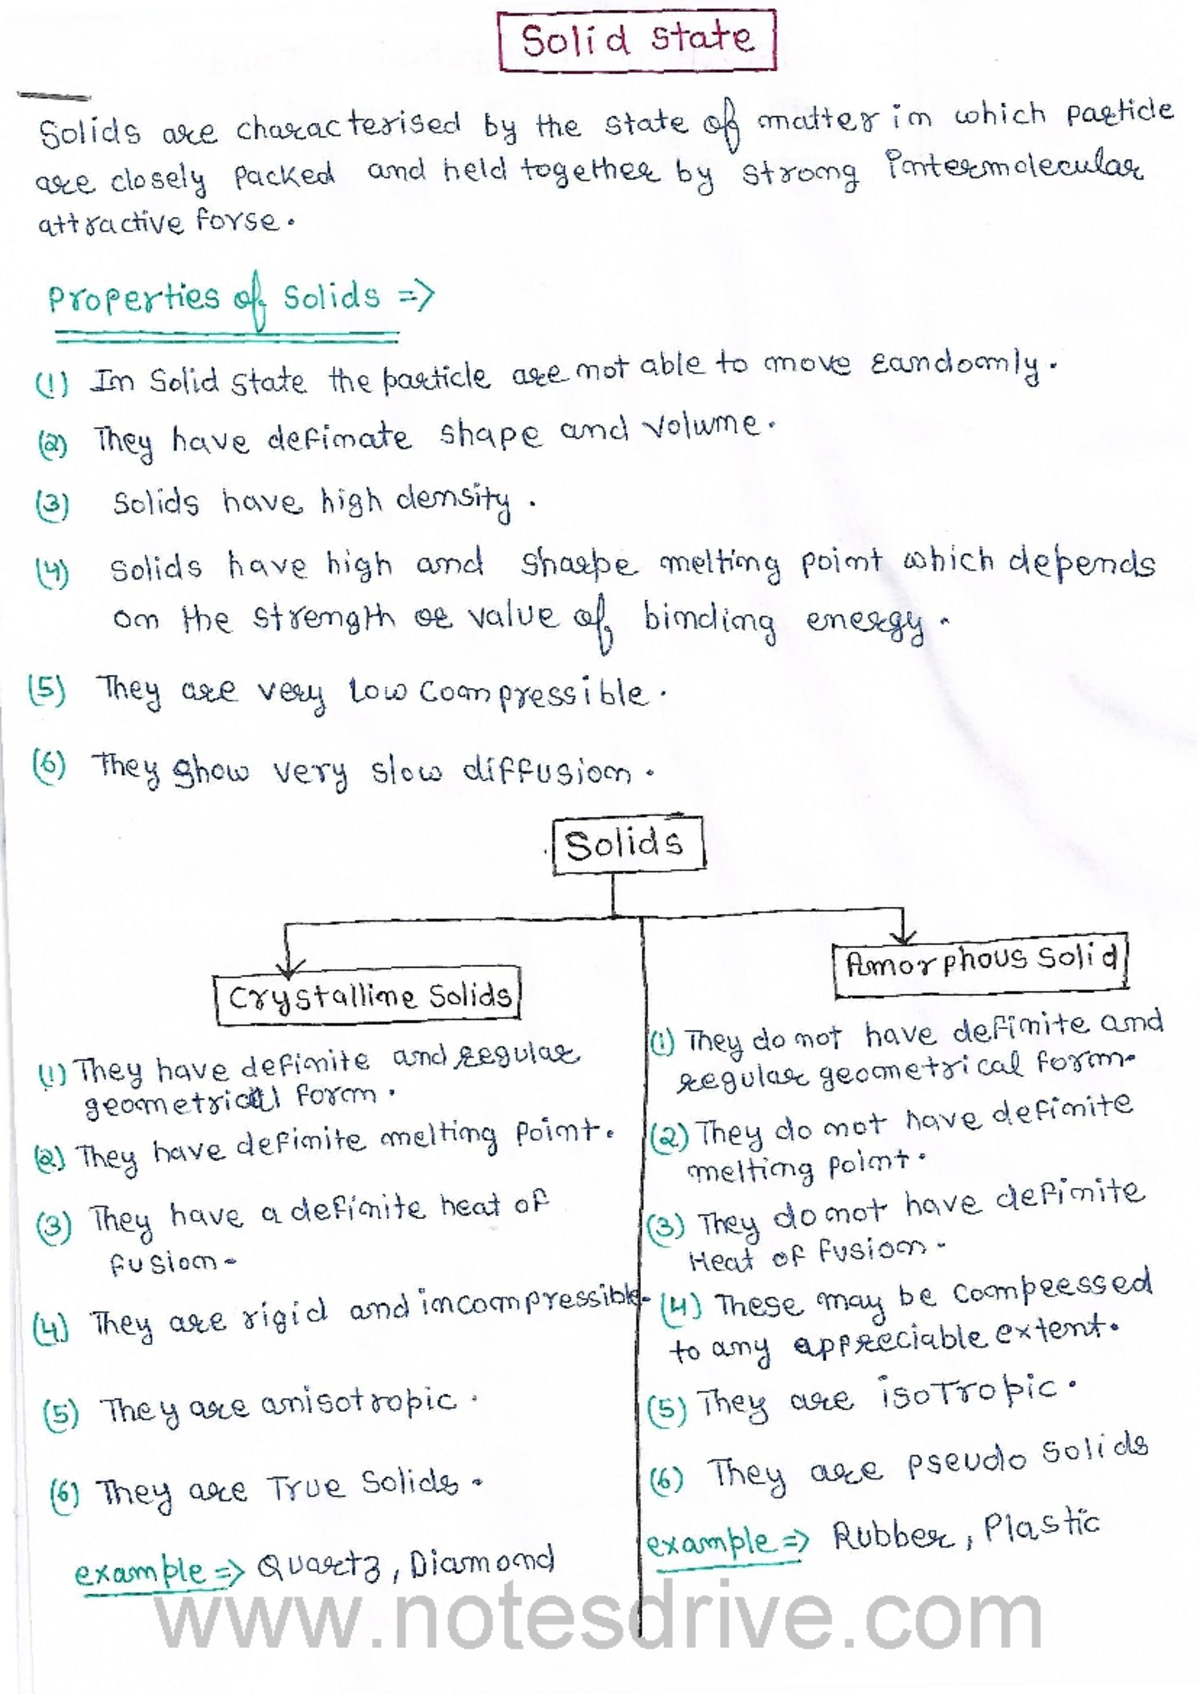 Solid state
Solids are characterised by the state of matter in which particle
are closely packed and held together by strong intermolecular
attractive forse.
Properties of Solids =>
(1) In Solid state the particle are not able to move randomly.
(2) They have definate shape and volume.
(3) Solids have high density.
(4) Solids have high and sharpe melting point which depends
on the strength or value of binding energy.
(5) They are very low compressible.
(6) They show very slow diffusion.
Solids
Crystalline Solids
(1) They have definite and regular
geometrical form.
(2) They have definite melting point.
(3) They have a definite heat of
fusion-
(4) They are rigid and incompressible.
(5) They are anisotropic.
(6) They are True Solids.
example => Quartz, Diamond
Amorphous Solid
(1) They do not have definite and
regular geometrical form-
(2) They do not have definite
melting point.
(3) They do not have definite
Heat of fusion-
(4) These may be compressed
to any appreciable extent.
(5) They are isoTropic.
(6) They are pseudo Solids
example => Rubber, Plastic
www.notesdrive.com